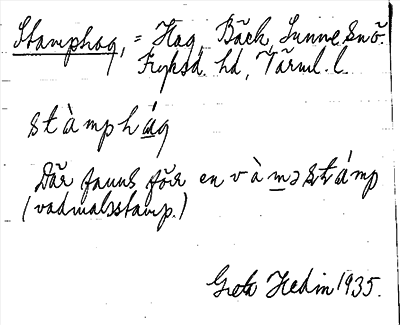 Stamphag, = Hag, Bäck, Sunne sn ö.
Fryksd. hd, Värml. l.
stàmphág
Där fanns förr en vàməstámp
(vadmalsstamp.)
Greta Hedin 1935.